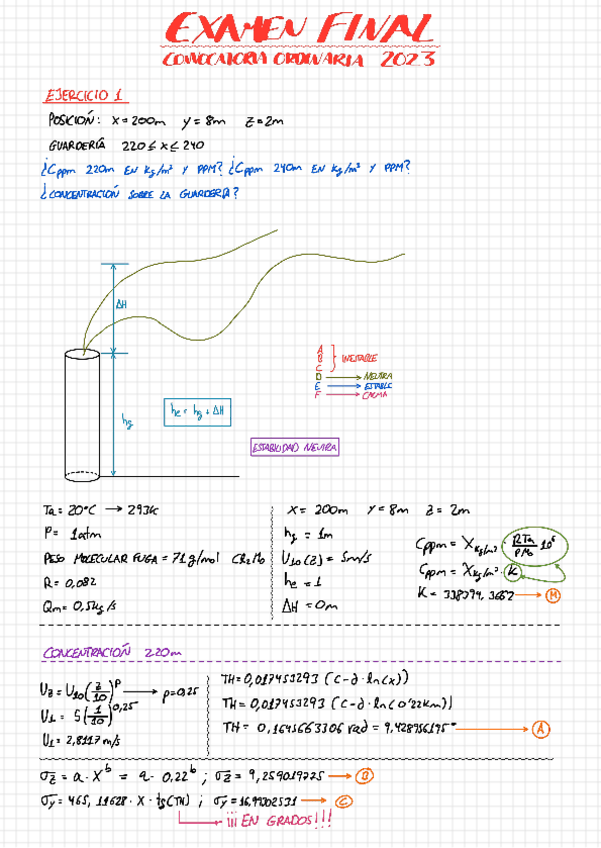 EXAMEN FINAL
CONVOCATORIA ORDINARIA 2023
EJERCICIO 1
POSICIÓN: X=200m Y=8m Z=2m
GUARDERÍA 220 ≤ X ≤ 240
¿Cppm 220m EN Kg/m³ Y PPM? ¿Cppm 240m EN Kg/m³ Y PPM?
¿CONCENTRACIÓN SOBRE LA GUARDERÍA?
ΔH
A
B
C
INESTABLE
D → NEUTRA
E → ESTABLE
F → CALMA
hg
he = hg + ΔH
ESTABILIDAD NEUTRA
Ta = 20°C → 293K
P = 1atm
PESO MOLECULAR FUGA = 71g/mol
R = 0,082
Qm = 0,5kg/s
X = 200m Y = 8m Z = 2m
hg = 1m
U10(z) = 5m/s
he = 1
ΔH = 0m
Cppm = X kg/m³ · RTa/PMo 10⁶
Cppm = X kg/m³ · K
K = 338394,3662 → M
CONCENTRACIÓN 220m
Uz = U10 (z/10)^p → p=0,25
U1 = 5(1/10)^0,25
U1 = 2,8117 m/s
TH = 0,017453293 (c-d·ln(x))
TH = 0,017453293 (c-d·ln(0'22km))
TH = 0,1645663306 rad = 9,428956195° → A
σz = a·X^b = a·0,22^b ; σz = 9,259019725 → B
σy = 465,11628 · X · tg(TH) ; σy = 16,99302531 → C
¡¡¡EN GRADOS!!!